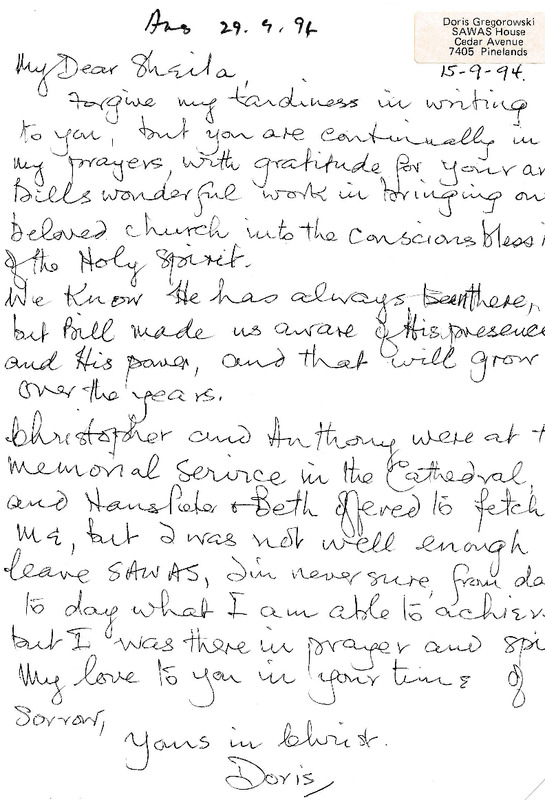 Ans 29.9.94
Doris Gregorowski
SAWAS House
Cedar Avenue
7405 Pinelands
15-9-94.
My Dear Sheila,
Forgive my tardiness in writing
to you, but you are continually in
my prayers, with gratitude for your an
Bills wonderful work in bringing ou
beloved church into the conscious blessi
of the Holy Spirit.
We know He has always been there,
but Bill made us aware of His presence
and His power, and that will grow
over the years.
Christopher and Anthony were at t
memorial service in the Cathedral,
and Hanspieter & Beth offered to fetch
me, but I was not well enough
leave SAWAS, I'm never sure, from da
to day what I am able to achiev
but I was there in prayer and spi
My love to you in your time of
sorrow,
Yours in Christ.
Doris,